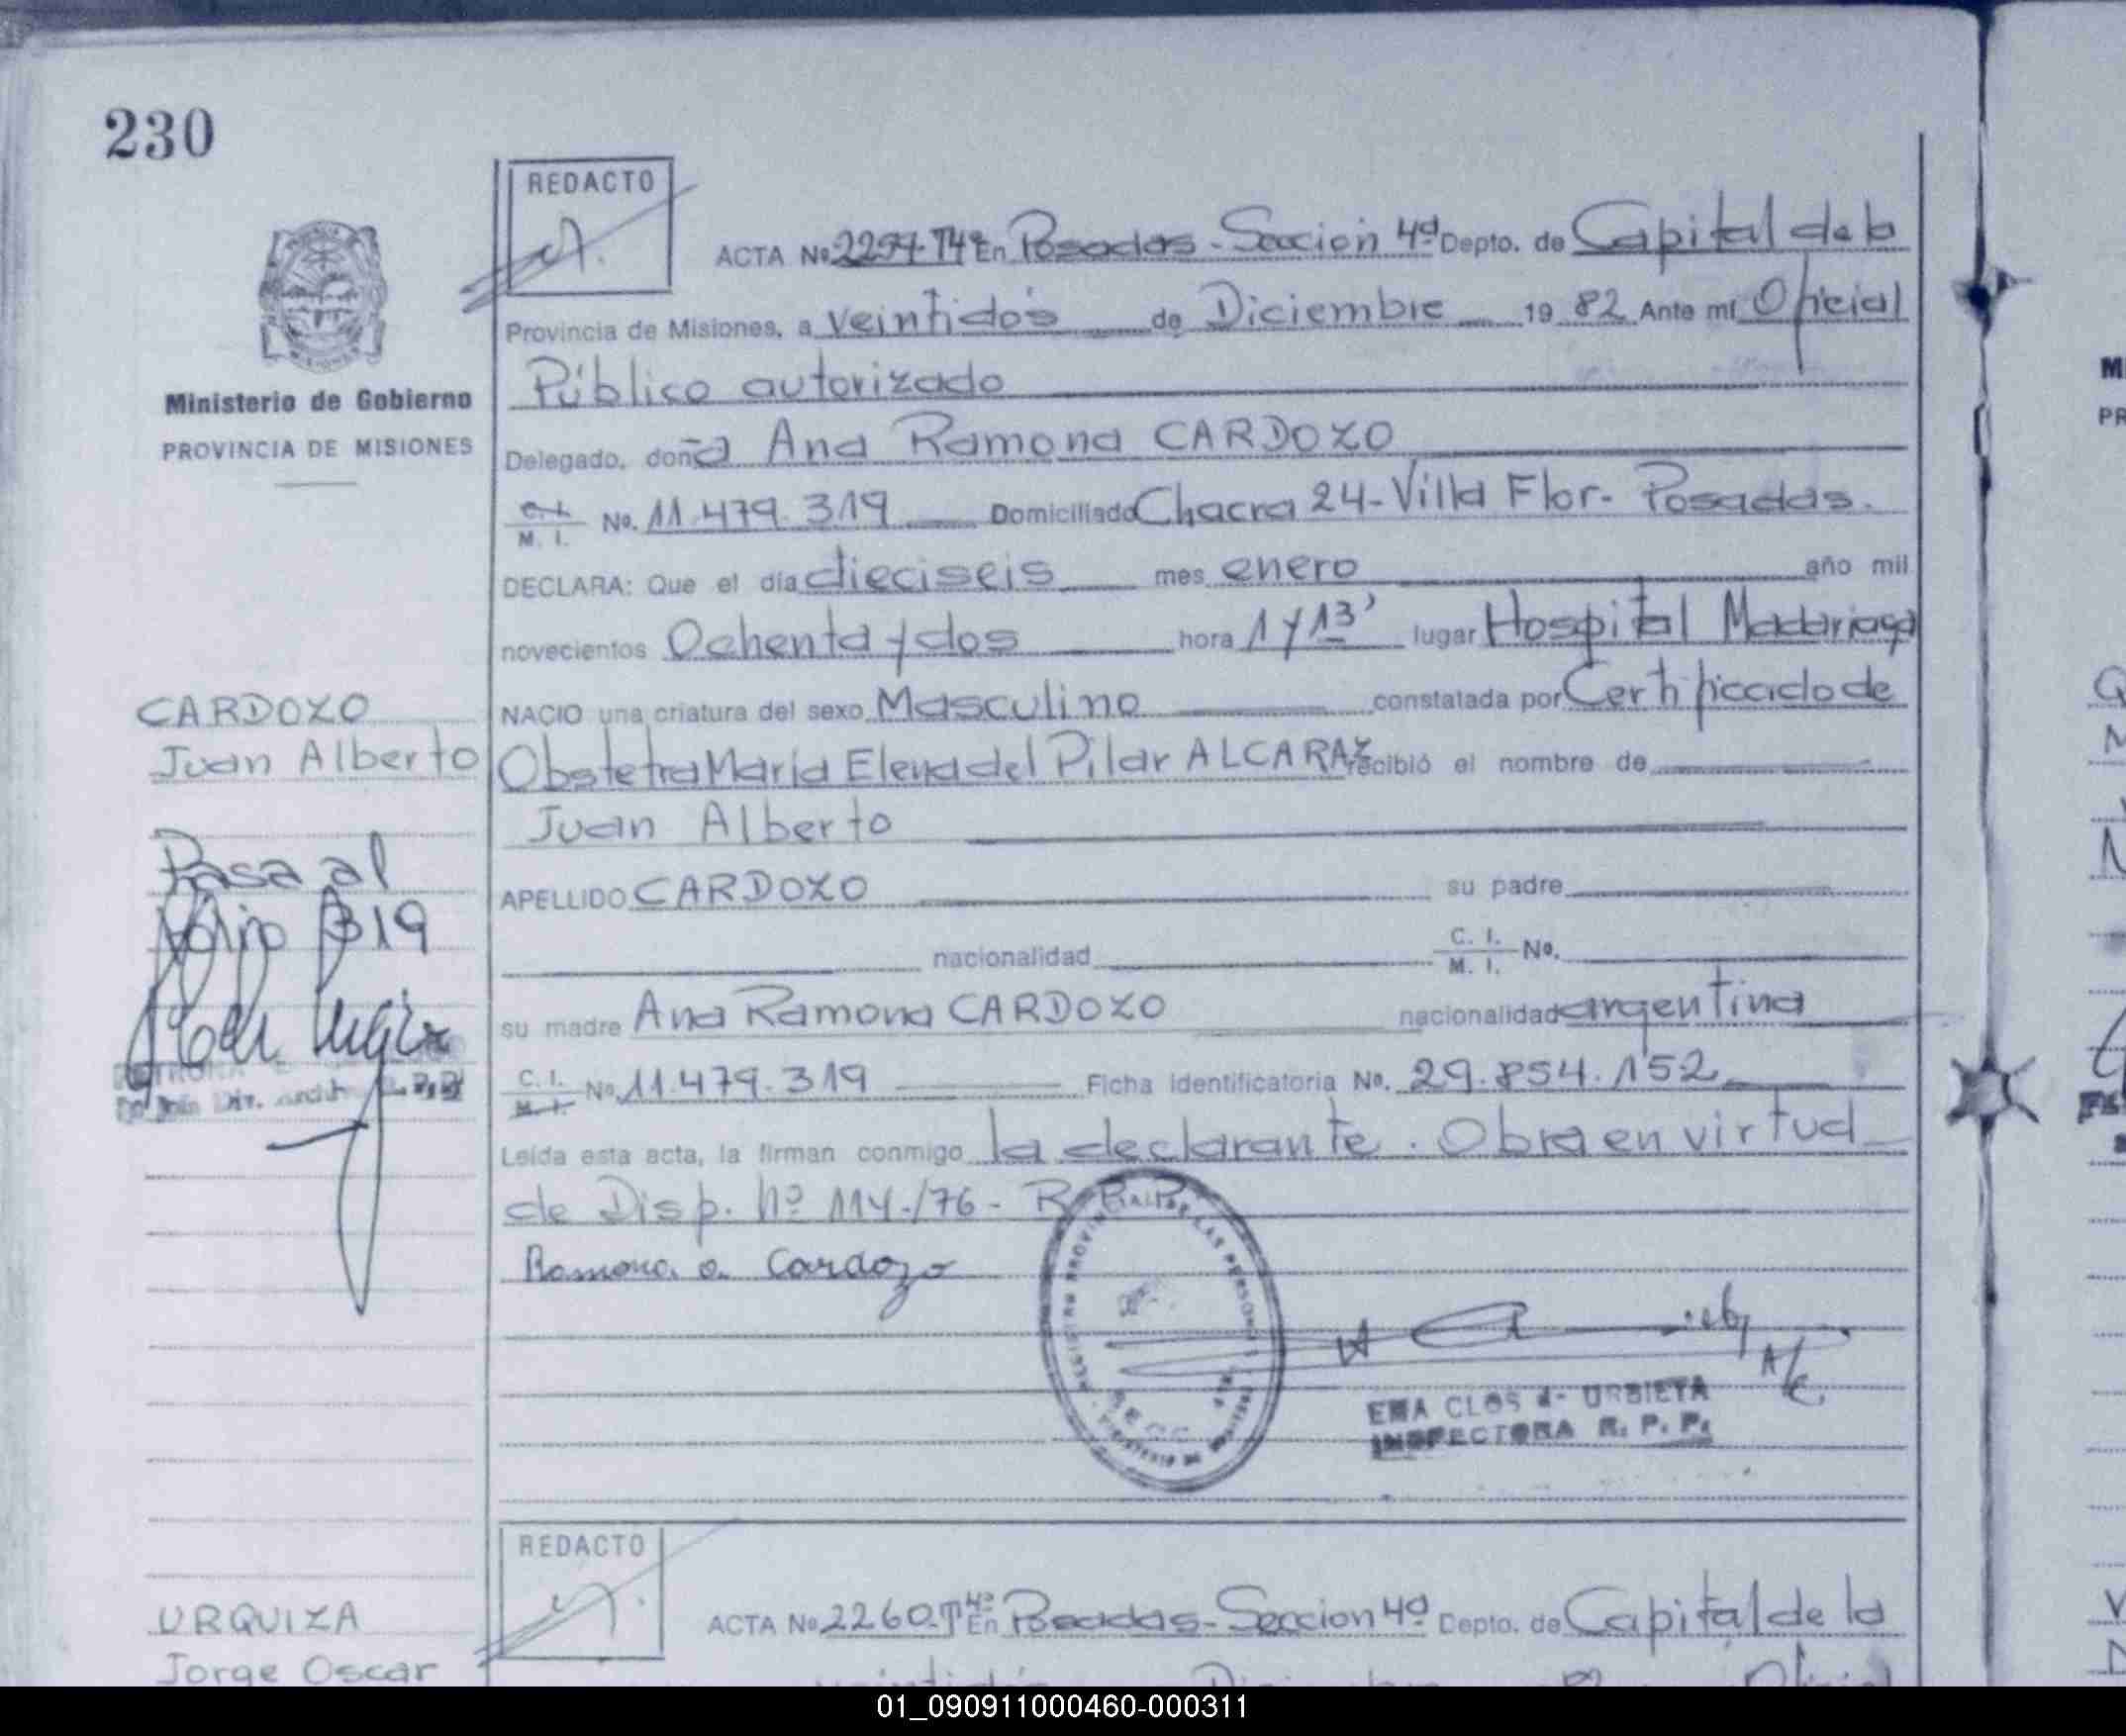 230
REDACTO
ACTA Nº 2297-Tº4º En Posadas - Sección 4ª Depto. de Capital de la
Provincia de Misiones, a veintidós de Diciembre 19 82 Ante mí Oficial
Público autorizado
Delegado, doña Ana Ramona CARDOZO
C. I. M. I. No. 11.479.319 Domiciliado Chacra 24 - Villa Flor - Posadas.
DECLARA: Que el día dieciseis mes enero año mil
novecientos Ochenta y dos hora 1 y 13' lugar Hospital Madariaga
NACIO una criatura del sexo Masculino constatada por Certificado de
Obstetra María Elena del Pilar ALCARAZ recibió el nombre de
Juan Alberto
APELLIDO CARDOZO su padre
nacionalidad C. I. M. I. No.
su madre Ana Ramona CARDOZO nacionalidad argentina
C. I. M. I. No. 11.479.319 Ficha Identificatoria No. 29.854.152
Leída esta acta, la firman conmigo la declarante. Obra en virtud
de Disp. Nº 114/76 - R.P.P.
Ramona a. Cardozo
A/C.
EMA CLOS de URBIETA
INSPECTORA R. P. P.
Ministerio de Gobierno
PROVINCIA DE MISIONES
CARDOZO
Juan Alberto
Pasa al
folio 319
REDACTO
ACTA Nº 2260-Tº4º En Posadas - Sección 4ª Depto. de Capital de la
URQUIZA
Jorge Oscar
01_090911000460-000311